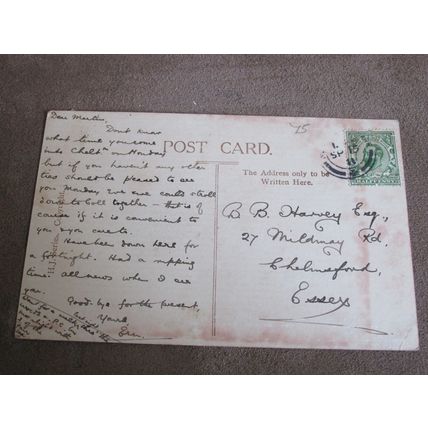 Dear Martin,
Dont know
what time you come
into Chelt^m on Monday
but if you haven't any other
ties should be pleased to see
you Monday eve we could stroll
down to Coll together – that is of
course if it is convenient to
you & you care to.
Have been down here for
a fortnight. Had a ripping
time. all news when I see
you.
Good-bye for the present,
Yours
Ern.
POST CARD.
The Address only to be
Written Here.
15
B. B. Harvey Esq.,
27 Mildmay Rd.
Chelmsford,
Essex